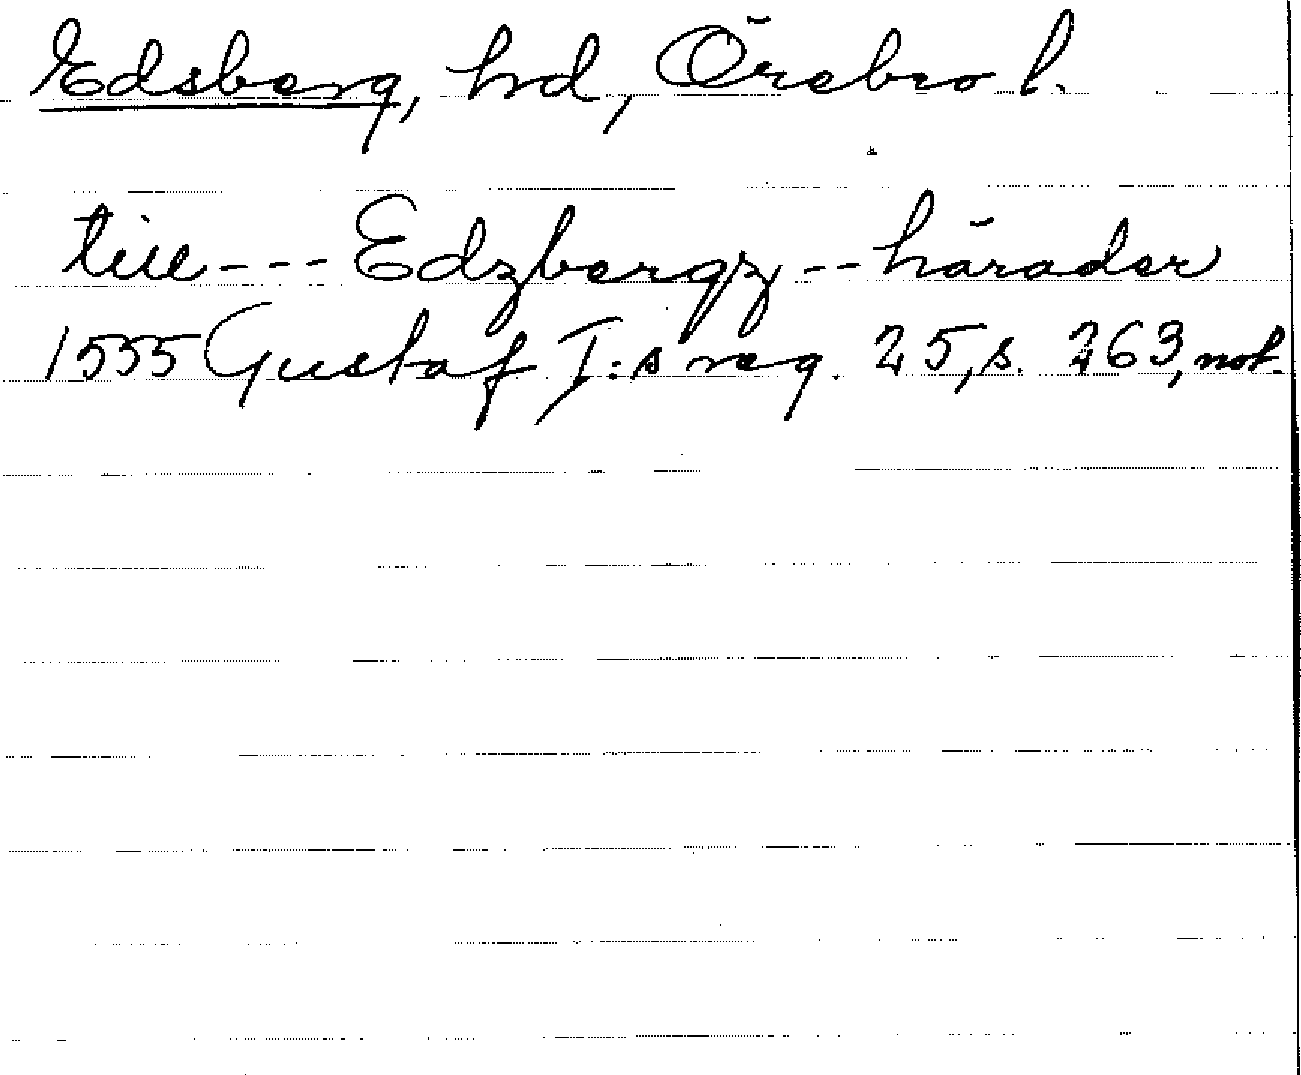 Edsberg, hd, Örebro l.
till --- Edzbergz -- härader
1555 Gustaf I:s reg. 25, s. 263, not.